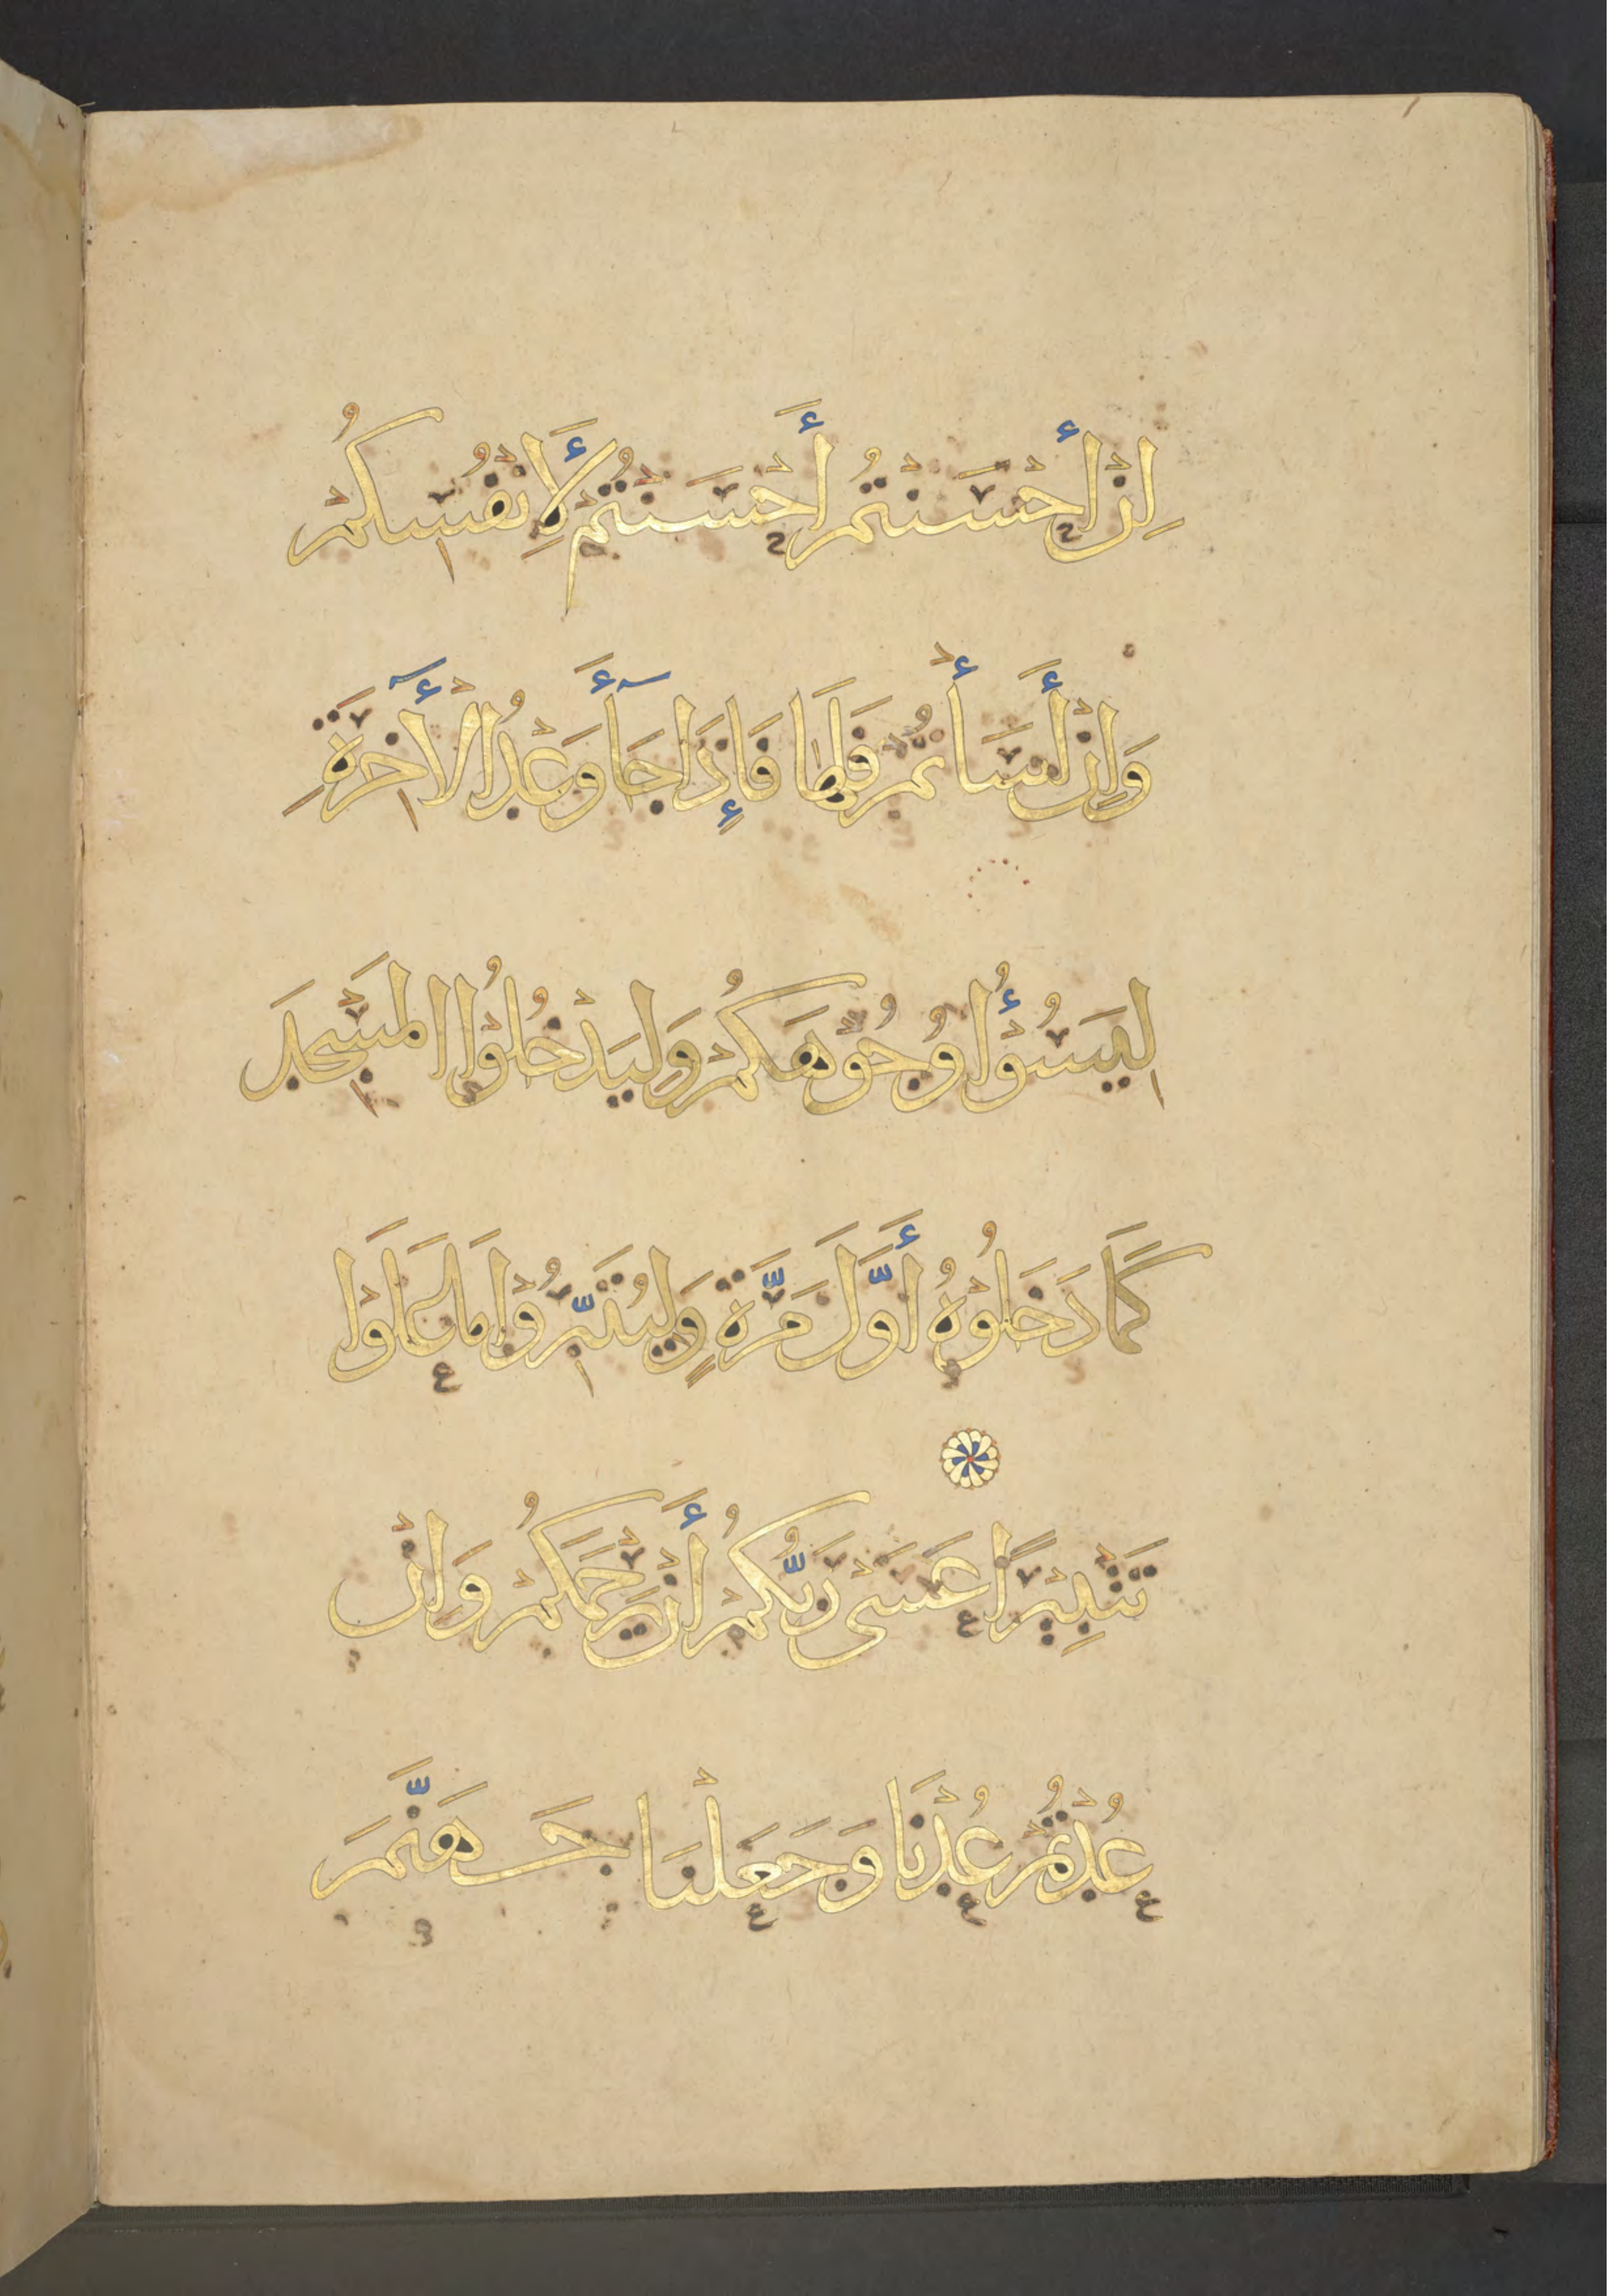 اِنْ أَحْسَنْتُمْ أَحْسَنْتُمْ لِأَنْفُسِكُمْ
وَاِنْ أَسَأْتُمْ فَلَهَا فَإِذَا جَآءَ وَعْدُ الْأٓخِرَةِ
لِيَسُوْؤُا وُجُوْهَكُمْ وَلِيَدْخُلُوْا الْمَسْجِدَ
كَمَا دَخَلُوْهُ أَوَّلَ مَرَّةٍ وَلِيُتَبِّرُوْا مَا عَلَوْا
تَتْبِيْرًا عَسَى رَبُّكُمْ أَنْ يَرْحَمَكُمْ وَاِنْ
عُدْتُمْ عُدْنَا وَجَعَلْنَا جَهَنَّمَ